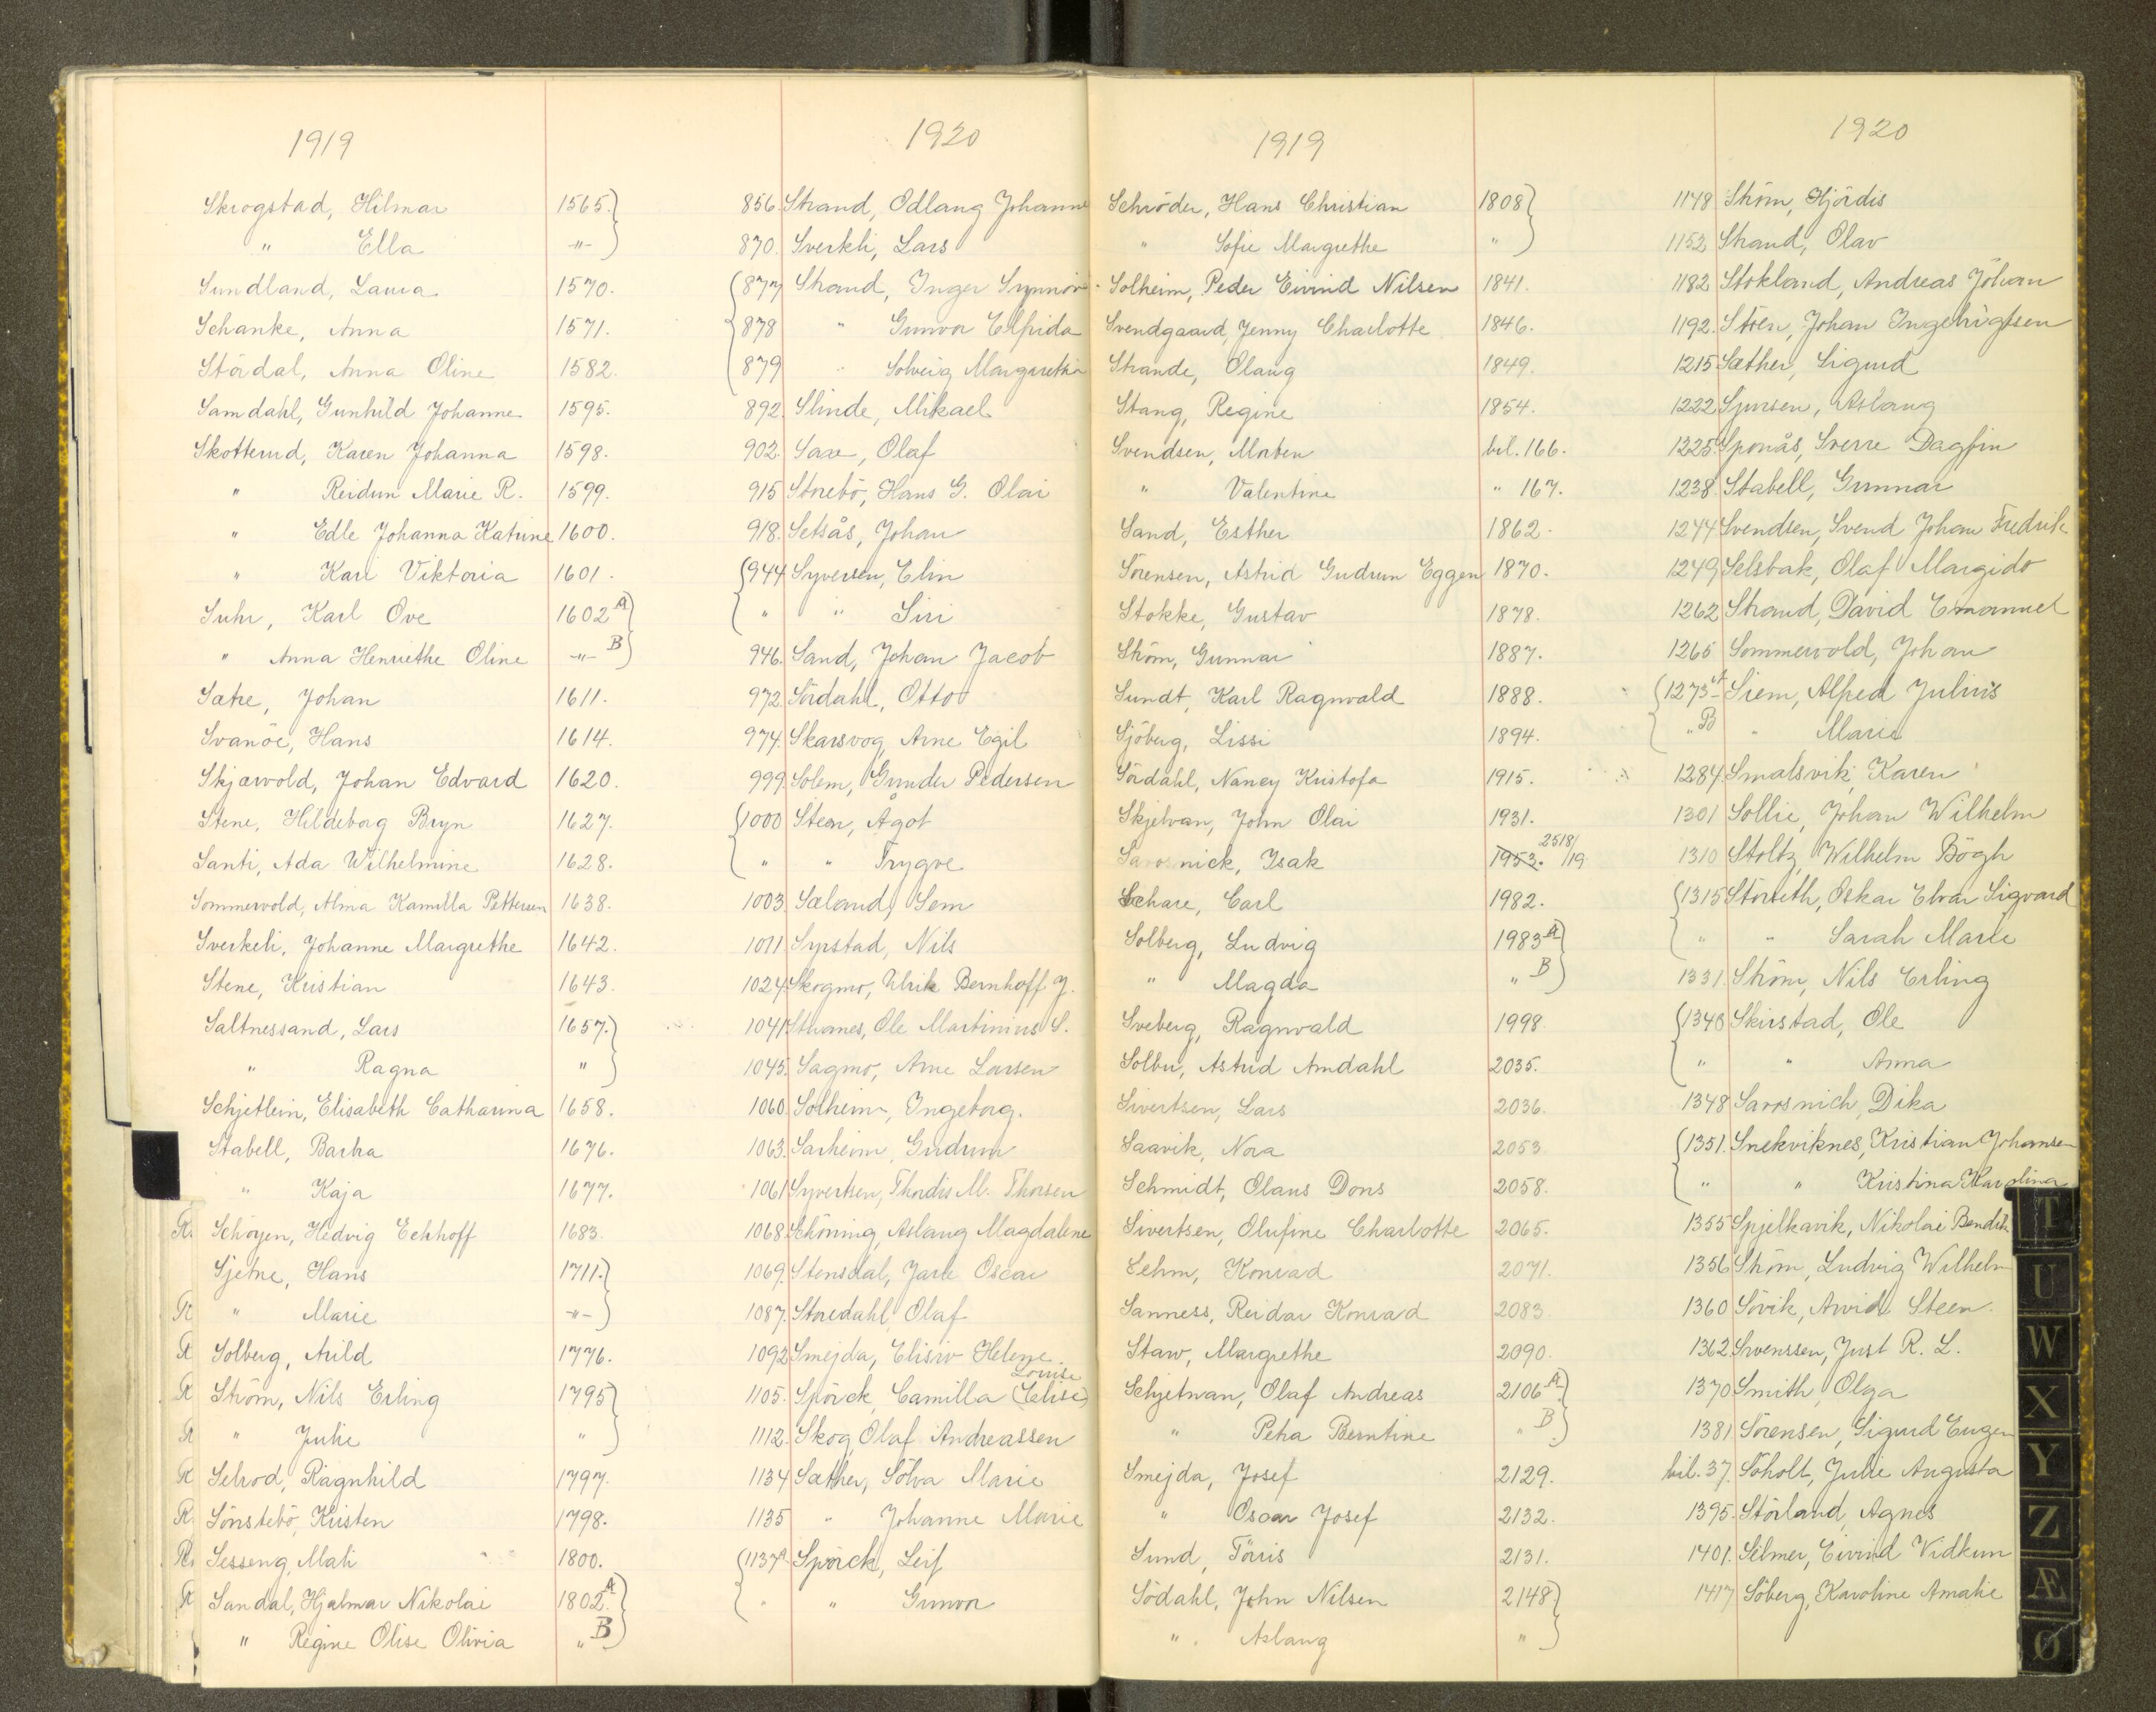 1919
Skrogstad, Hilmar 1565.
" Ella -"-
Sundland, Laura 1570.
Schanke, Anna 1571.
Stördal, Anna Oline 1582.
Samdahl, Gunhild Johanne 1595.
Skotterud, Karen Johanna 1598.
" Reidun Marie R. 1599.
" Edle Johanna Katrine 1600.
" Kari Viktoria 1601.
Suhr, Karl Ove 1602 A
" Anna Henriethe Oline -"- B
Sætre, Johan 1611.
Svanöe, Hans 1614.
Skjærvold, Johan Edvard 1620.
Stene, Hildeborg Bryn 1627.
Santi, Ada Wilhelmine 1628.
Sommervold, Alma Kamilla Pettersen 1638.
Sverkeli, Johanne Margrethe 1642.
Stene, Kristian 1643.
Saltnessand, Lars 1657.
" Ragna "
Schjetlein, Elisabeth Catharina 1658.
Stabell, Barha 1676.
" Kaja 1677.
R. Schöyen, Hedvig Eckhoff 1683.
Sjetne, Hans 1711.
R " Marie -"-
R Solberg, Arild 1776.
R Ström, Nils Erling 1795
R " Julie "
R Selrod, Ragnhild 1797.
R. Sönstebö, Kristen 1798.
R. Sesseng, Mali 1800.
R Sandal, Hjalmar Nikolai 1802. A
" Regine Olise Olivia " B
1920
856. Strand, Odlaug Johanne
870. Sverkli, Lars
877 Strand, Inger Synnöv
878 " Gunvor Elfrida
879 " Solveig Margretha
892. Slinde, Mikael
902. Saxe, Olaf
915 Storebö, Hans G. Olai
918. Setsås, Johan
944 Syversen, Elin
" " Siri
946. Sand, Johan Jacob
972. Sördahl, Otto
974. Skarsvog, Arne Egil
999. Solem, Gunder Pedersen
1000 Steen, Ågot
" " Trygve
1003. Sæland, Sem
1011. Syrstad, Nils
1024. Skogmo, Ulrik Bernhoff J.
1041 Ole Martinius S.
1045. Sagmo, Arne Larsen
1060. Solheim, Ingeborg.
1063. Sarheim, Gudrun
1061 Syvertsen, Thordis M. Thorsen
1068. Schöning, Aslaug Magdalene
1069. Stensdal, Jarle Oscar
1087. Storedahl, Olaf
1092 Smejda, Elisiv Helene.
Louise
1105. Spörck, Camilla (Lelise)
1112. Skog, Olaf Andreassen
1134 Sæther, Sölva Marie
1135 " Johanne Marie
1137 A. Spörck, Leif
" " Gunvor
1919
Schröder, Hans Christian 1808
" Sofie Margrethe "
Solheim, Peder Eivind Nilsen 1841.
Svendgaard, Jenny Charlotte 1846.
Strande, Olaug 1849.
Stang, Regine 1854.
Svendsen, Morten bil. 166.
" Valentine " 167.
Sand, Esther 1862.
Sörensen, Astrid Gudrun Eggen 1870.
Stokke, Gustav 1878.
Ström, Gunnar 1887.
Sundt, Karl Ragnvald 1888.
Sjöberg, Lissi 1894.
Sördahl, Nancy Kristofa 1915.
Skjelvan, John Olai 1931.
Savosnick, Isak 1953. 2518/19
Schare, Carl 1982.
Solberg, Ludvig 1983 A
" Magda " B
Sveberg, Ragnvald 1998
Solbu, Astrid Amdahl 2035.
Sivertsen, Lars 2036.
Saavik, Nora 2053
Schmidt, Olaus Dons 2058.
Sivertsen, Olufine Charlotte 2065.
Sehm, Konrad 2071.
Sanness, Reidar Konrad 2083.
Staw, Margrethe 2090.
Schjetnan, Olaf Andreas 2106 A
" Petra Berntine " B
Smejda, Josef 2129.
" Oscar Josef 2132.
Sund, Törris 2131.
Södahl, John Nilsen 2148
" Aslaug "
1920
1148 Ström, Hjördis
1152 Strand, Olav
1182 Stokland, Andreas Johan
1192. Stören, Johan Ingebrigtsen
1215 Sæther, Sigurd
1222 Sjursen, Aslaug
1225 Sponås, Sverre Dagfin
1238. Stabell, Gunnar
1244 Svendsen, Svend Johan Fredrik
1249 Selsbak, Olaf Margido
1262 Strand, David Emanuel
1265 Sommervold, Johan
1273 A Siem, Alfred Julius
" B " Marie
1284. Smalsvik, Karen
1301 Sollie, Johan Wilhelm
1310 Stoltz, Wilhelm Bögh
1315 Störseth, Oskar Elvar Sigvard
" " Sarah Marie
1331. Ström, Nils Erling
1346 Skirstad, Ole
" " Anna
1348 Savosnich, Dika
1351. Snekviknes, Kristian Johansen
" " Kristina Karolina
1355 Spjelkavik, Nikolai Bendik
1356 Ström, Ludvig Wilhelm
1360 Sövik, Arvid Steen.
1362 Svenssen, Just R. L.
1370 Smith, Olga
1381 Sörensen, Sigurd Eugen
bil. 37. Söholt, Julie Augusta
1395. Störland, Agnes
1401. Silmer, Eivind Vidkun
1417 Söberg, Karoline Amalie
T
U
W
X
Y
Z
Æ
Ø